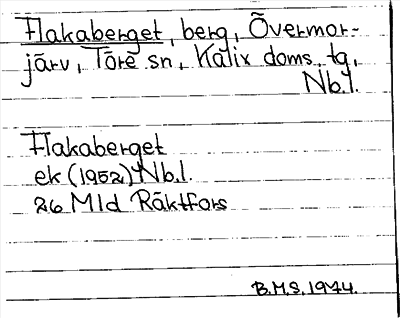 Flakaberget, berg, Övermor-
järv, Töre sn, Kalix doms. tg,
Nb.l.
Flakaberget
ek (1952) Nb.l.
26 Mld Räktfors
B.M.S. 1974.